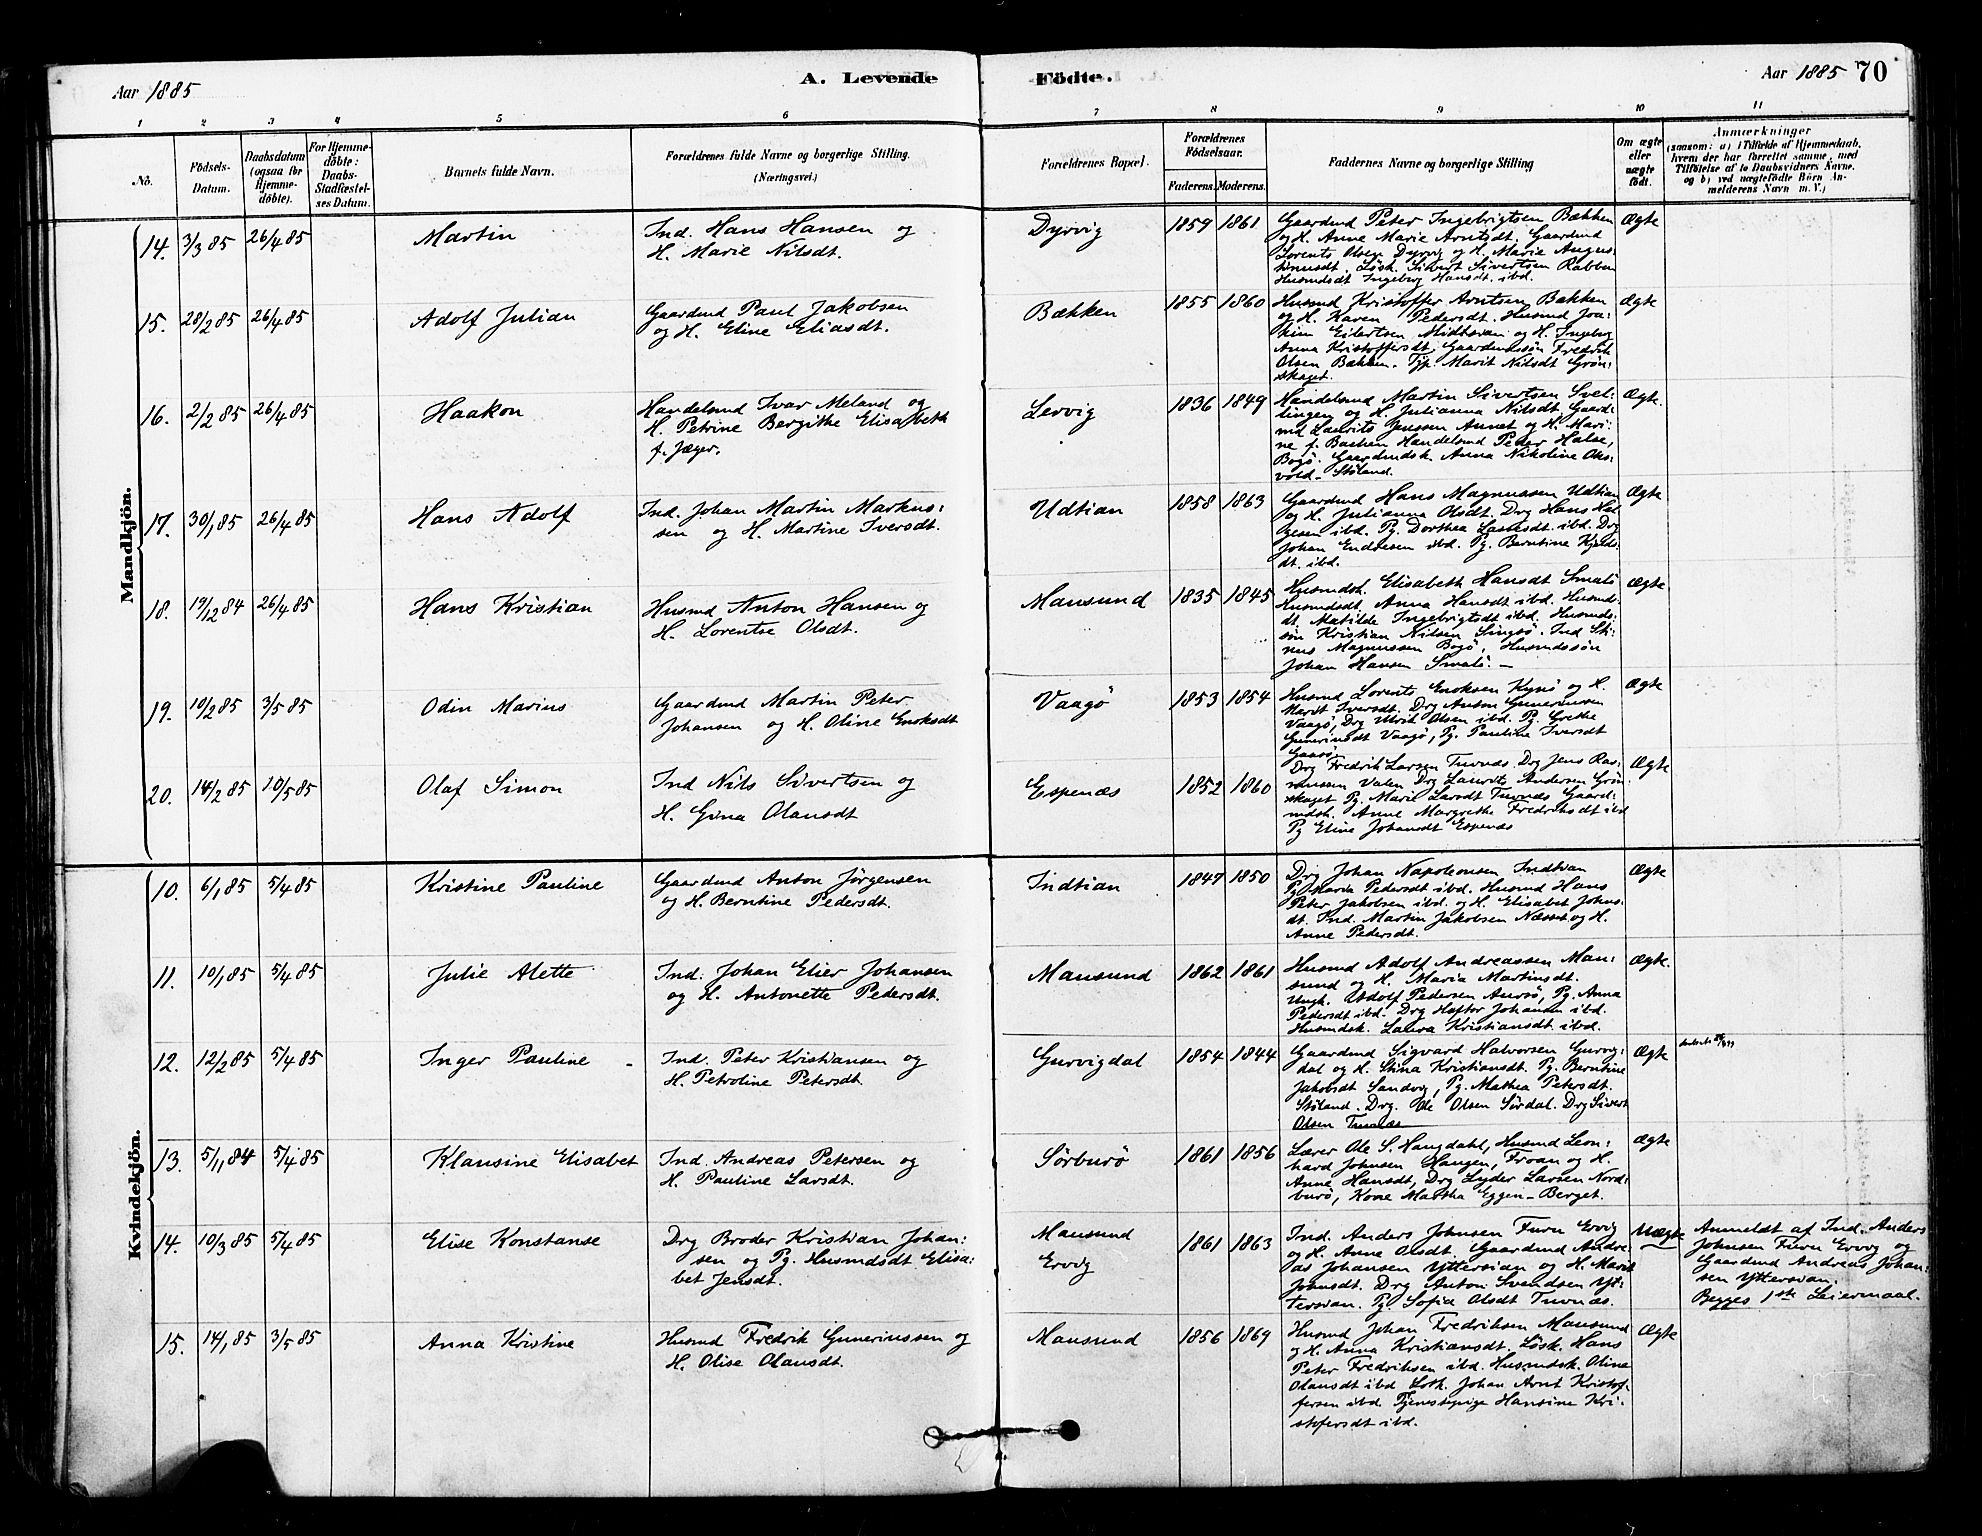 Aar 1885
A. Levende
Födte.
Aar 1885 70
1 2 3 4 5 6 7 8 9 10 11
No.
Födsels-
Datum.
Daabsdatum
(ogsaa for
Hjemme-
döbte).
For Hjemme-
döbte:
Daabs-
Stadfæstel-
ses Datum.
Barnets fulde Navn.
Forældrenes fulde Navne og borgerlige Stilling.
(Næringsvei.)
Forældrenes Bopæl.
Forældrenes
Födselsaar.
Faderens. Moderens.
Faddernes Navne og borgerlige Stilling
Om ægte
eller
uægte
födt.
Anmærkninger
(saasom: a) i Tilfælde af Hjemmedaab,
hvem der har forrettet samme, med
Tilföielse af to Daabsvidners Navne,
og b) ved uægtefödte Börn An-
melderens Navn m. V.)
Mandkjön.
14. 3/3 85 26/4 85 Martin
Ind. Hans Hansen og
H. Marie Nilsdt.
Dyrvig 1859 1861
Gaardmd Peter Ingebrigtsen Bækken
og H. Anne Marie Arntsdt. Gaardmd
Lorents Olsen Dyrvig og H. Marie Augus-
tinusdt. Løsk. Sivert Sivertsen Rabben
Husmdsdt Ingeborg Hansdt. ibd.
Ægte
15. 28/2 85 26/4 85 Adolf Julian
Gaardmd Paul Jakobsen
og H. Eline Eliasdt.
Bækken 1855 1860
Husmd Kristoffer Arntsen Bækken
og H. Karen Pedersdt. Husmd Joa-
kim Eilertsen og H. Ingeborg
Anna Kristoffersdt. Gaardmandssön Fredrik
Olsen Bækken. Tjp. Marit Nilsdt Grön-
skaget.
Ægte
16. 2/2 85 26/4 85 Haakon
Handelsmd Ivar Meland og
H. Petrine Bergithe Elisabeth
f. Jæger.
Lervig 1836 1849
Handelsmd Martin Sivertsen Svel-
lingen og H. Julianna Nilsdt. Gaard-
md Laurits Jenssen Annet og H. Mari-
ne f. Bachen Handelsmd Peter Halse,
Bogö. Gaardmdsk. Anna Nikoline Oks-
vold - Stöland.
Ægte.
17. 30/1 85 26/4 85 Hans Adolf
Ind. Johan Martin Markus-
sen og H. Martine Iversdt.
Udtian 1858 1863
Gaardmd Hans Magnussen Udtian
og H. Julianna Olsdt. Drg Hans Hel-
gesen ibd. Pg. Dorthea Larsdt. ibd. Drg
Johan Endresen ibd. Pg. Berntine Kjelds-
dt. ibd.
Ægte
18. 19/12 84 26/4 85 Hans Kristian
Husmd Anton Hansen og
H. Lorentse Olsdt.
Mansund 1835 1845
Husmdsk. Elisabeth Hansdt Smalö
Husmdsdt. Anna Hansdt ibd. Husmds-
dt. Matilde Ingebrigtsdt ibd. Husmds-
sön Kristian Nilsen Singsö. Ind Sti-
nus Magnussen Bogö, Husmdssön
Johan Hansen Smalö. -
Ægte
19. 10/2 85 3/5 85 Odin Marius
Gaardmd Martin Peter
Johansen og H. Oline Enoksdt
Vaagö 1853 1854
Husmd Lorents Enoksen Kynö og H.
Marit Iversdt. Drg Anton Gunerinusen
Vaagö, Drg Ulrik Olsen ibd. Pg. Grethe
Gunerinusdt Vaagö, Pg. Pauline Iversdt
Gaasö
Ægte
20. 14/2 85 10/5 85 Olaf Simon
Ind Nils Sivertsen og
H. Gina Olausdt
Espenæs 1852 1860
Drg Fredrik Larsen Tuvnæs. Drg Jens Ras-
mussen Valen. Drg Laurits Andersen Grön-
skaget Pg. Marie Larsdt Tuvnæs. Gaard-
mdsk. Anne Margrethe Fredriksdt ibd
Pg Eline Johansdt Espenæs
Ægte
Kvindekjön.
10. 6/1 85 5/4 85 Kristine Pauline
Gaardmd Anton Jörgensen
og H. Berntine Pedersdt.
Indtian 1847 1850
Drg Johan Napoleonsen Indtian
Pg Maria Pedersdt ibd. Husmd Hans
Peter Jakobsen ibd. og H. Elisabet Johns-
dt. Ind. Martin Jakobsen Næsset og H.
Anne Pedersdt.
Ægte
11. 10/1 85 5/4 85 Julie Alette
Ind. Johan Elier Johansen
og H. Antonette Pedersdt.
Mansund 1862 1861
Husmd Adolf Andreassen Man-
sund og H. Maria Martinsdt.
Ungk. Adolf Pedersen Aursö, Pg. Anna
Pedersdt ibd. Drg Haftor Johansen ibd.
Husmdsk. Laura Kristiansdt ibd.
Ægte.
12. 12/2 85 5/4 85 Inger Pauline -
Ind. Peter Kristiansen og
H. Petroline Petersdt.
Gurvigdal 1854 1844
Gaardmd Sigvard Halvorsen Gurvig-
dal og H. Stina Kristiansdt. Pg. Berntine
Jakobsdt Sandvig, Pg. Mathea Petersdt.
Stöland. Drg. Ole Olsen Sördal. Drg Sivert
Olsen Tuvnæs
Ægte
13. 5/11 84 5/4 85 Klausine Elisabet
Ind. Andreas Petersen og
H. Pauline Larsdt.
Sörburö 1861 1856
Lærer Ole S. Haugdahl, Husmd Leon-
hard Johnsen Haugen, Froan og H.
Anne Hansdt, Drg Lyder Larsen Nord-
burö, Kone Martha Eggen - Berget.
Ægte
14. 10/3 85 5/4 85 Elise Konstanse
Drg Broder Kristian Johan-
sen og Pg. Husmdsdt Elisa-
bet Jensdt.
Mansund
Ervig
1861 1863
Ind. Anders Johnsen Furu Ervig
og H. Anne Olsdt. Gaardmd Andre-
as Johansen Yttersian og H. Marit
Johnsdt. Drg Anton Svendsen Yt-
tersian. Pg Sofia Olsdt Tuvnæs.
Uægte
Anmeldt af Ind. Anders
Johnsen Furu Ervig og
Gaardmd Andreas Johan-
sen Yttersian.
Begges 1ste Leiermaal.
15. 14/1 85 3/5 85 Anna Kristine
Husmd Fredrik Gunerinussen og
H. Olise Olausdt.
Mansund 1856 1869
Husmd Johan Fredriksen Mansund
og H. Anna Kristiansdt. Lösk. Hans
Peter Fredriksen ibd. Husmdsk. Oline
Olausdt ibd Loth. Johan Arnt Kristof-
fersen ibd. Tjenestepige Hansine Kri-
stofersdt ibd.
Ægte